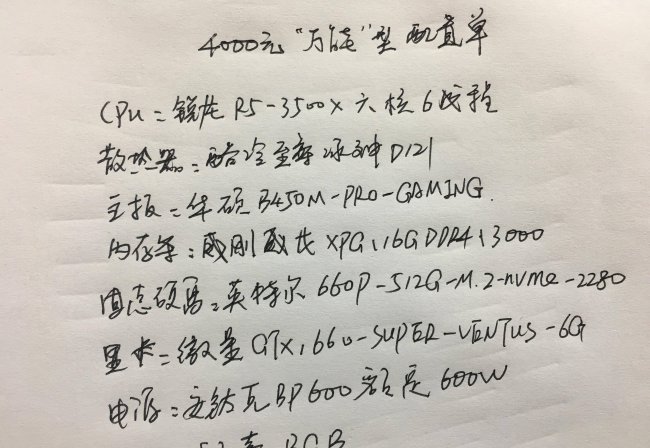 4000元“万能”型 配置单
CPU：锐龙 R5-3500X 六核6线程
散热器：酷冷至尊冰神D121
主板：华硕 B450M-PRO-GAMING
内存条：威刚威龙 XPG、16G DDR4、3000
固态硬盘：英特尔 660P-512G-M.2-nvme-2280
显卡：微星 GTX1660-SUPER-VENTUS-6G
电源：安钛克BP600额定600W
RGB